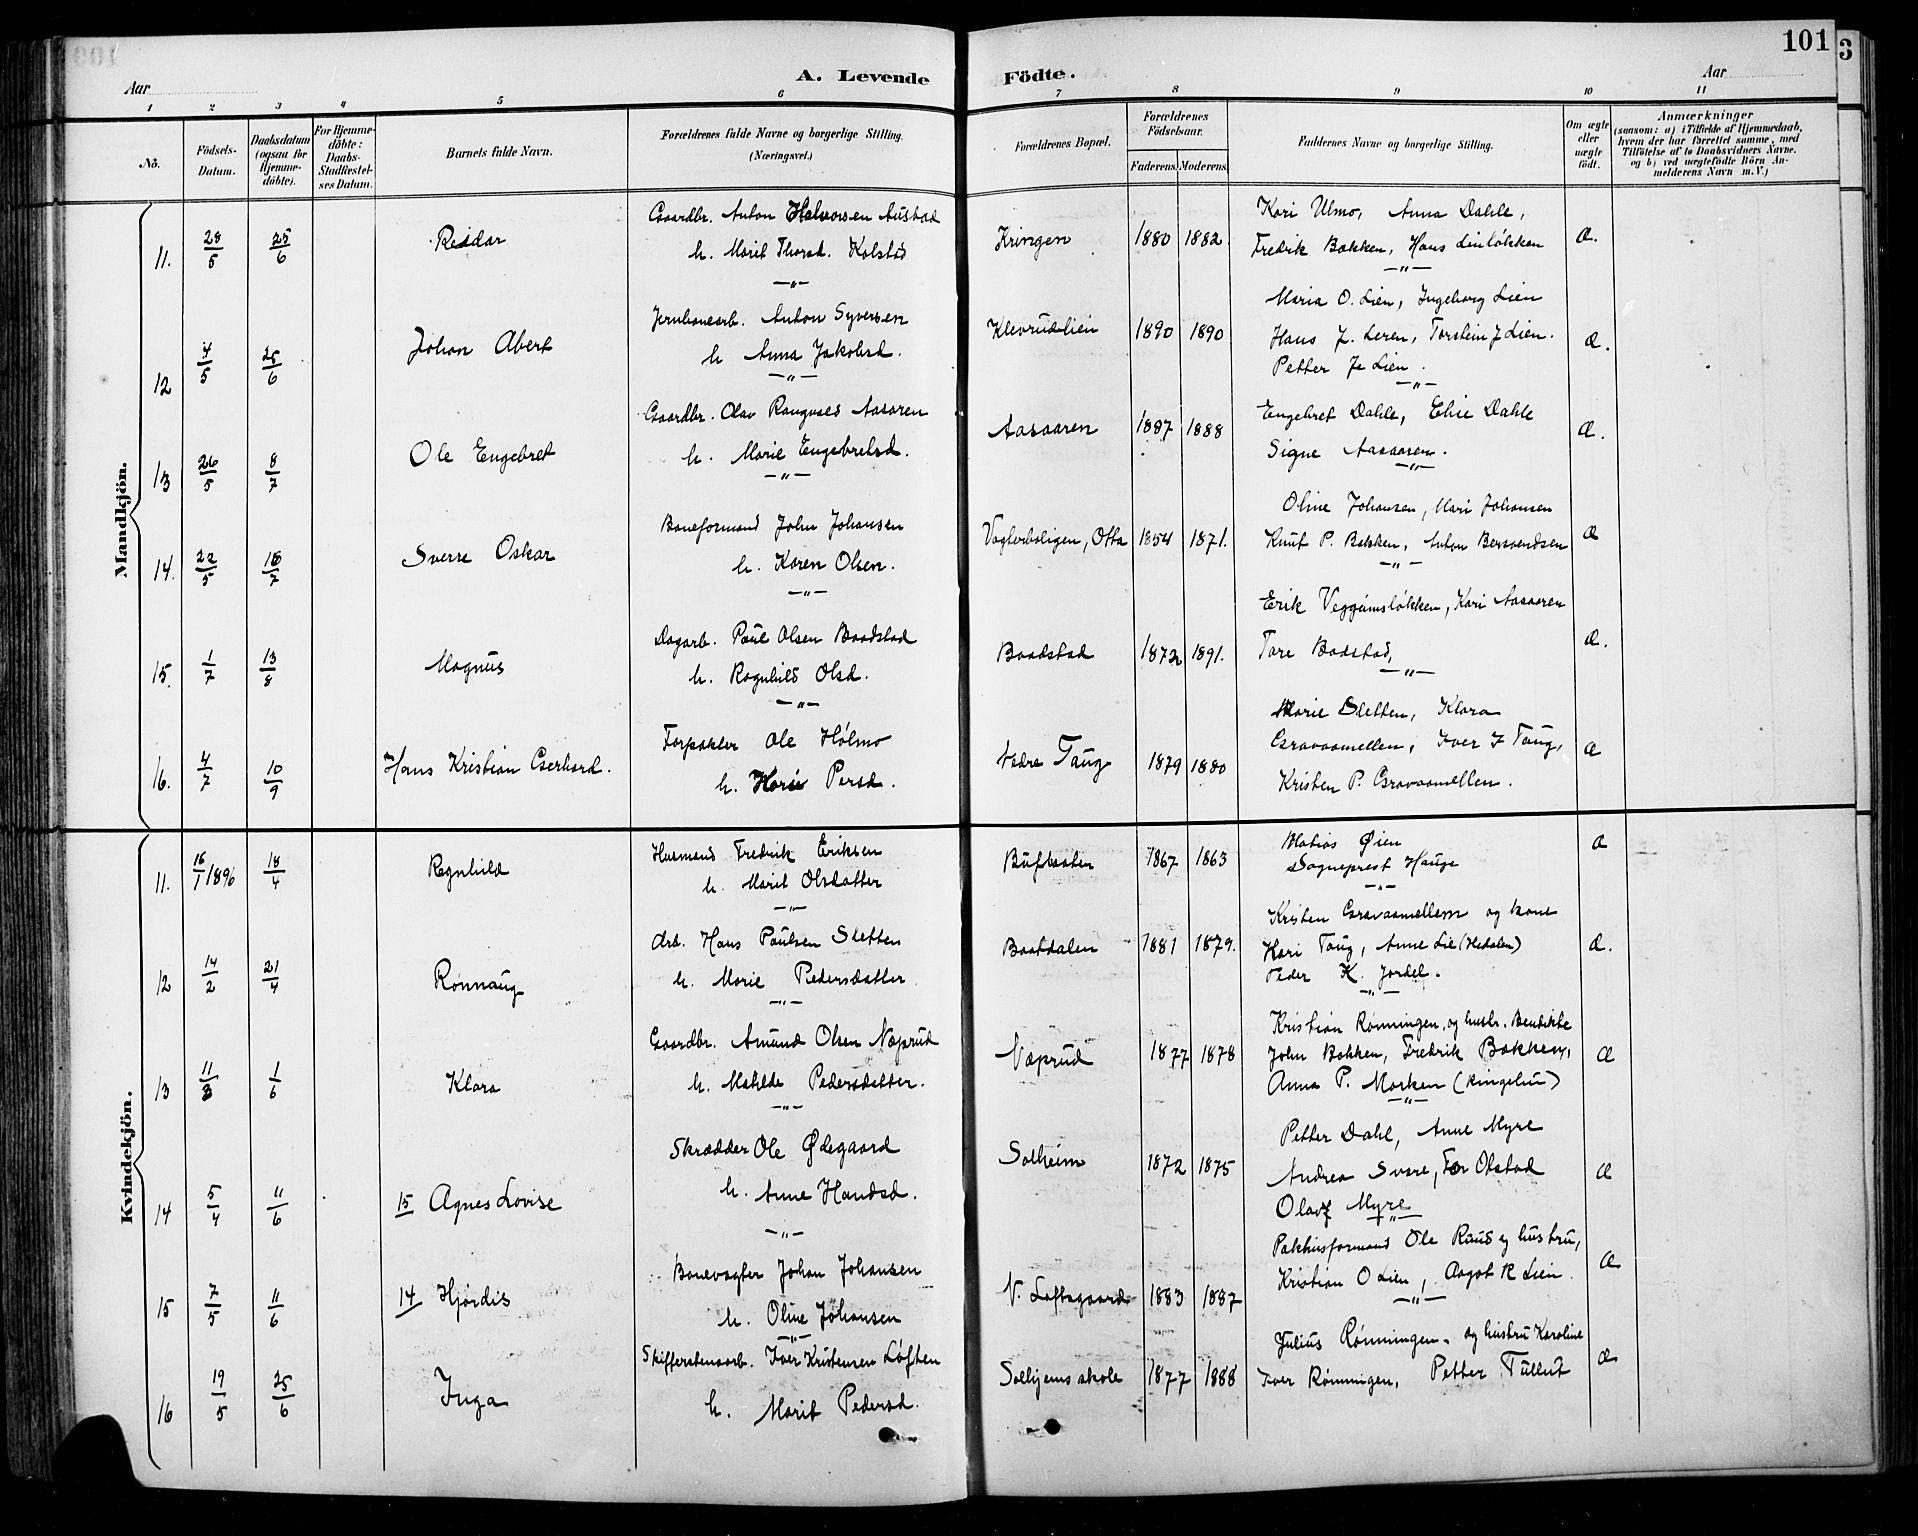 101
3
Aar
A. Levende
Födte.
Aar
1 2 3 4 5 6 7 8 9 10 11
No.
Födsels-Datum.
Daabsdatum (ogsaa for Hjemme-döbte).
For Hjemme-döbte: Daabs-Stadfæstel-ses Datum.
Barnets fulde Navn.
Forældrenes fulde Navne og borgerlige Stilling. (Næringsvei.)
Forældrenes Bopæl.
Forældrenes Födselsaar.
Faderens. Moderens.
Faddernes Navne og borgerlige Stilling.
Om ægte eller uægte födt.
Anmærkninger
(saasom: a) i Tilfælde af Hjemmedaab,
hvem der har forrettet samme, med
Tilföielse af to Daabsvidners Navne.
og b) ved uægtefödte Börn An-
melderens Navn m.V.)
Mandkjön.
11. 28/5 25/6 Reidar
Gaardbr. Anton Halvorsen Austad
h. Marit Thorsd. Kolstad
—"—
Kringen 1880 1882.
Kari Ulmo, Anna Dahle,
Fredrik Bakken, Hans Linløkken
—"—
Æ.
12 4/5 25/6 Johan Abert
Jernbanearb. Anton Syversen
h Anna Jakobsd.
—"—
Klevrudlien 1890 1890
Maria O. Lien, Ingeborg Lien
Hans J. Leren, Torstein J Lien.
Petter Lien.
—"—
Æ.
13 26/5 8/7 Ole Engebret
Gaardbr. Olav Rangvald Aasaaren
h. Marie Engebretsd.
—"—
Aasaaren 1887 1888
Engebret Dahle, Elise Dahle
Signe Aasaaren.
—"—
Æ.
14. 22/5 16/7 Sverre Oskar
Baneformand John Johansen
h. Karen Olsen.
—"—
Vogterboligen, Otta 1854 1871.
Oline Johansen, Mari Johansen
Knut P. Bakken, Anton Bersvendsen
—"—
Æ
15. 1/7 13/8 Magnus
Dagarb. Paul Olsen Baadstad
h. Ragnhild Olsd.
—"—
Baadstad 1872 1891.
Erik Veggumsløkken, Kari Aasaaren
Tore Baadstad,
—"—
Æ.
16. 4/7 10/9 Hans Kristian Gerhard.
Forpakter Ole Holmo
h. Marie Persd.
Nedre Taug 1879 1880
Marie Sletten, Klara
Gravaamellen, Iver I Taug,
Kristen P. Gravaamellen.
Æ
Kvindekjön.
11. 16/1 1896 18/4 Ragnhild
Husmand Fredrik Eriksen
h. Marit Olsdatter
—"—
1867 1863
Matias Øien
Sogneprest Hauge
—"—
Æ
12 14/2 21/4 Rønnaug
Arb. Hans Paulsen Sletten
h. Marie Pedersdatter
—"—
Baatdalen 1881 1879.
Kristen Gravaamellem og kone
Kari Taug, Anne Lie (Hedalen)
Peder K. Jordel.
—"—
Æ.
13 11/3 1/6 Klara
Gaardbr. Amund Olsen Næprud
h. Mathilde Pedersdatter.
—"—
Næprud 1877 1878
Kristian Rønningen, og hustr. Bendikte
John Bakken, Fredrik Bakken,
Anna P. Morken (Ringebu)
—"—
Æ
14 5/4 11/6 15 Agnes Lovise
Skrædder Ole Ødegaard
h. Anne Hansd.
—"—
Solheim 1872 1875
Petter Dahl, Anne Myre
Andrea Svare, Tor Olstad
Olav Myre
—"—
Æ
15 7/5 11/6 14 Hjørdis
Banevogter Johan Johansen
h. Oline Johansen
—"—
N. Loftsgaard 1883 1887
Pakhusformand Ole Ruud og hustru,
Kristian O Lien, Aagot R Lien.
—"—
Æ
16 19/5 25/6 Inga
Skifferstensarb. Iver Kristensen Løften
h. Marit Pedersd.
Solhjems skole 1877 1888
Julius Rønningen, og hustru Karoline
Iver Rønningen, Petter Tullut
Æ